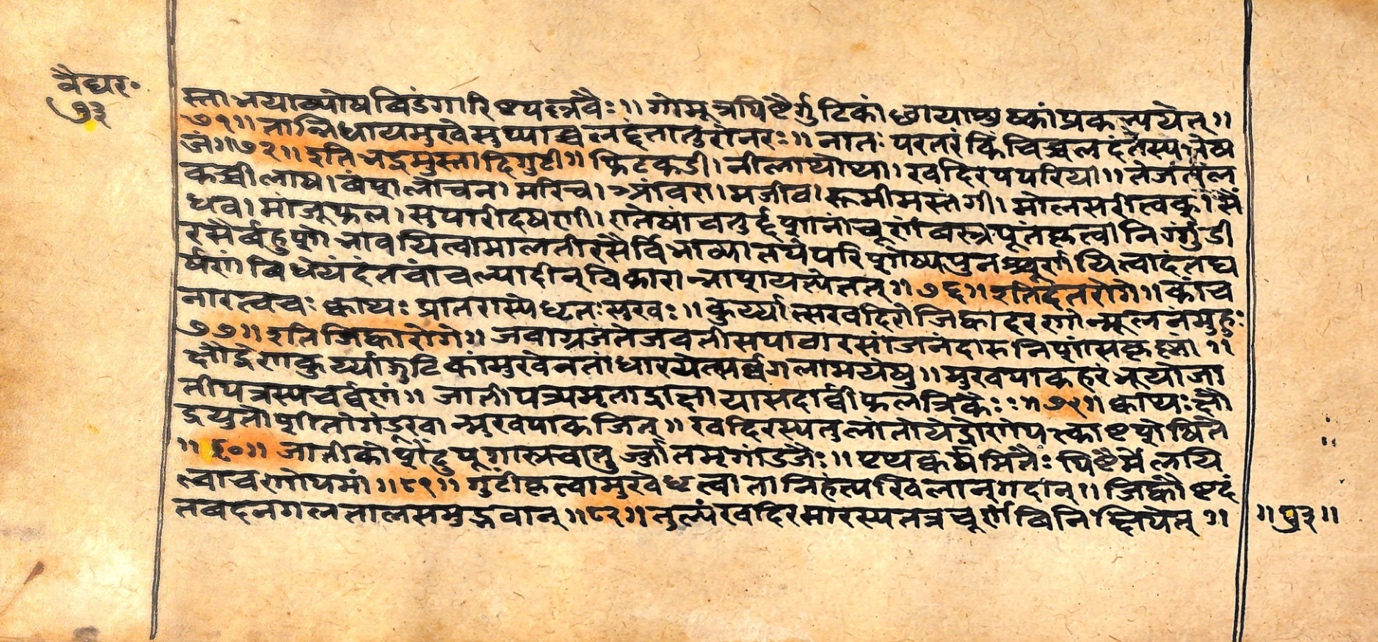 वैद्यर॰
७३
स्ताभयाव्योषविडंगारिष्टपल्लवैः॥ गोमूत्रपिष्टैर्गुटिकां छायाशुष्कां प्रकल्पयेत्॥
७१॥ तान्निधायमुखेसुप्याच्चलदंतातुरोनरः॥ नातः परतरं किंचिच्चलदंतस्यभेष
जं॥७२॥ इतिभद्रमुस्तादिगुटी॥ फिटकडी। नीलाथोथा। खदिरपपरिया॥ तेजतल
कचीलाष। वंशलोचन। मरिच। आंवरा। मजीव। रूमीमस्तंगी। मोलसरीत्वक्। सैं
धव। मांजूफल। सुपारीदषणी। एतेषाचतुर्द्दशानां चूर्णं वस्त्रपूतंकृत्वा निर्गुंडी
रसैर्वहुशो भावयित्वामालतीरसैर्विभाव्यातपेपरिशोष्यपुनश्चूर्णयित्वादंतघ
र्षणं विधेयं दंतचांचल्यादीन् विकारान्नाशयत्येतत्॥७६॥ इतिदंतरोगे॥ कांच
नारत्वचः क्वाथः प्रातरास्येधृतःसुखः॥ कुर्य्यात्सखदिरोजिह्वादरणोन्मूलनंमुहुः
७७॥ इतिजिह्वारोगे॥ जवाग्रजंतेजवतीसपाठारसांजनंदारुनिशांसकृष्णां॥
क्षौद्रेणकुर्य्याद्गुटिकांमुखेनतांधारयेत्सर्वगलामयेषु॥ मुखपाकहरंभूयोजा
तीपत्रस्यचर्वणं॥ जातीपत्रामृताद्राक्षायासदार्वीफलत्रिकैः॥७९॥ क्वाथःक्षौ
द्रयुतोशीतोगंडूखान्मुखपाकजित्॥ खदिरस्यतुलांतोयेद्रोणेपक्त्वाष्टशेषिते
॥८०॥ जातीकोशेंदुपूगास्तचातुर्जातमृगांडजैः॥ पृथक्कर्षमितैः पिष्टैर्मेलयि
त्वाचणोपमां॥८१॥ गुटींकृत्वामुखेधृत्वातानिहंत्यखिलान्गदान्॥ जिह्वौष्टदं
तवदनगलतालुसमुद्भवान्॥८२॥ तुल्यंखदिरसारस्यतत्रचूर्णं विनिक्षिपेत्॥
॥५३॥